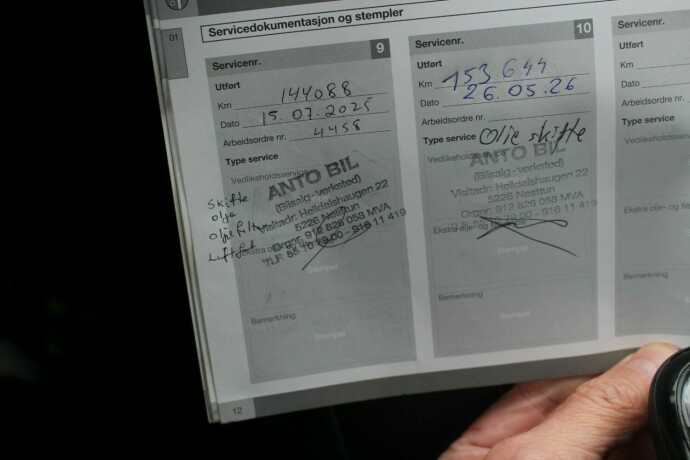 01
Servicedokumentasjon og stempler
Servicenr. 9
Utført
Km 144088
Dato 15.07.2025
Arbeidsordre nr. 4458
Type service
Vedlikeholdsservice
Skifte
olje
oljefilter
Luftfilt
ANTO BIL
(Bilsalg - verksted)
Visitadr: Helldalshaugen 22
5226 Nesttun
Orgnr: 912 826 058 MVA
TLF. 55 10 19 00 - 916 11 419
Ekstra olje- og
Stempel
Bemerkning
Stempel
12
Servicenr. 10
Utført
Km 153 644
Dato 26.05.26
Arbeidsordre nr.
Type service Olje skifte
Vedlikeholdsservice
ANTO BIL
(Bilsalg - verksted)
Visitadr: Helldalshaugen 22
5226 Nesttun
Orgnr: 912 826 058 MVA
19 00 - 916 11 419
Ekstra olje- og
Stempel
Bemerkning
Stempel
Servicenr.
Utført
Km
Dato
Arbeidsordre
Type service
Vedlikeholds
Ekstra olje- og
Bemerkning